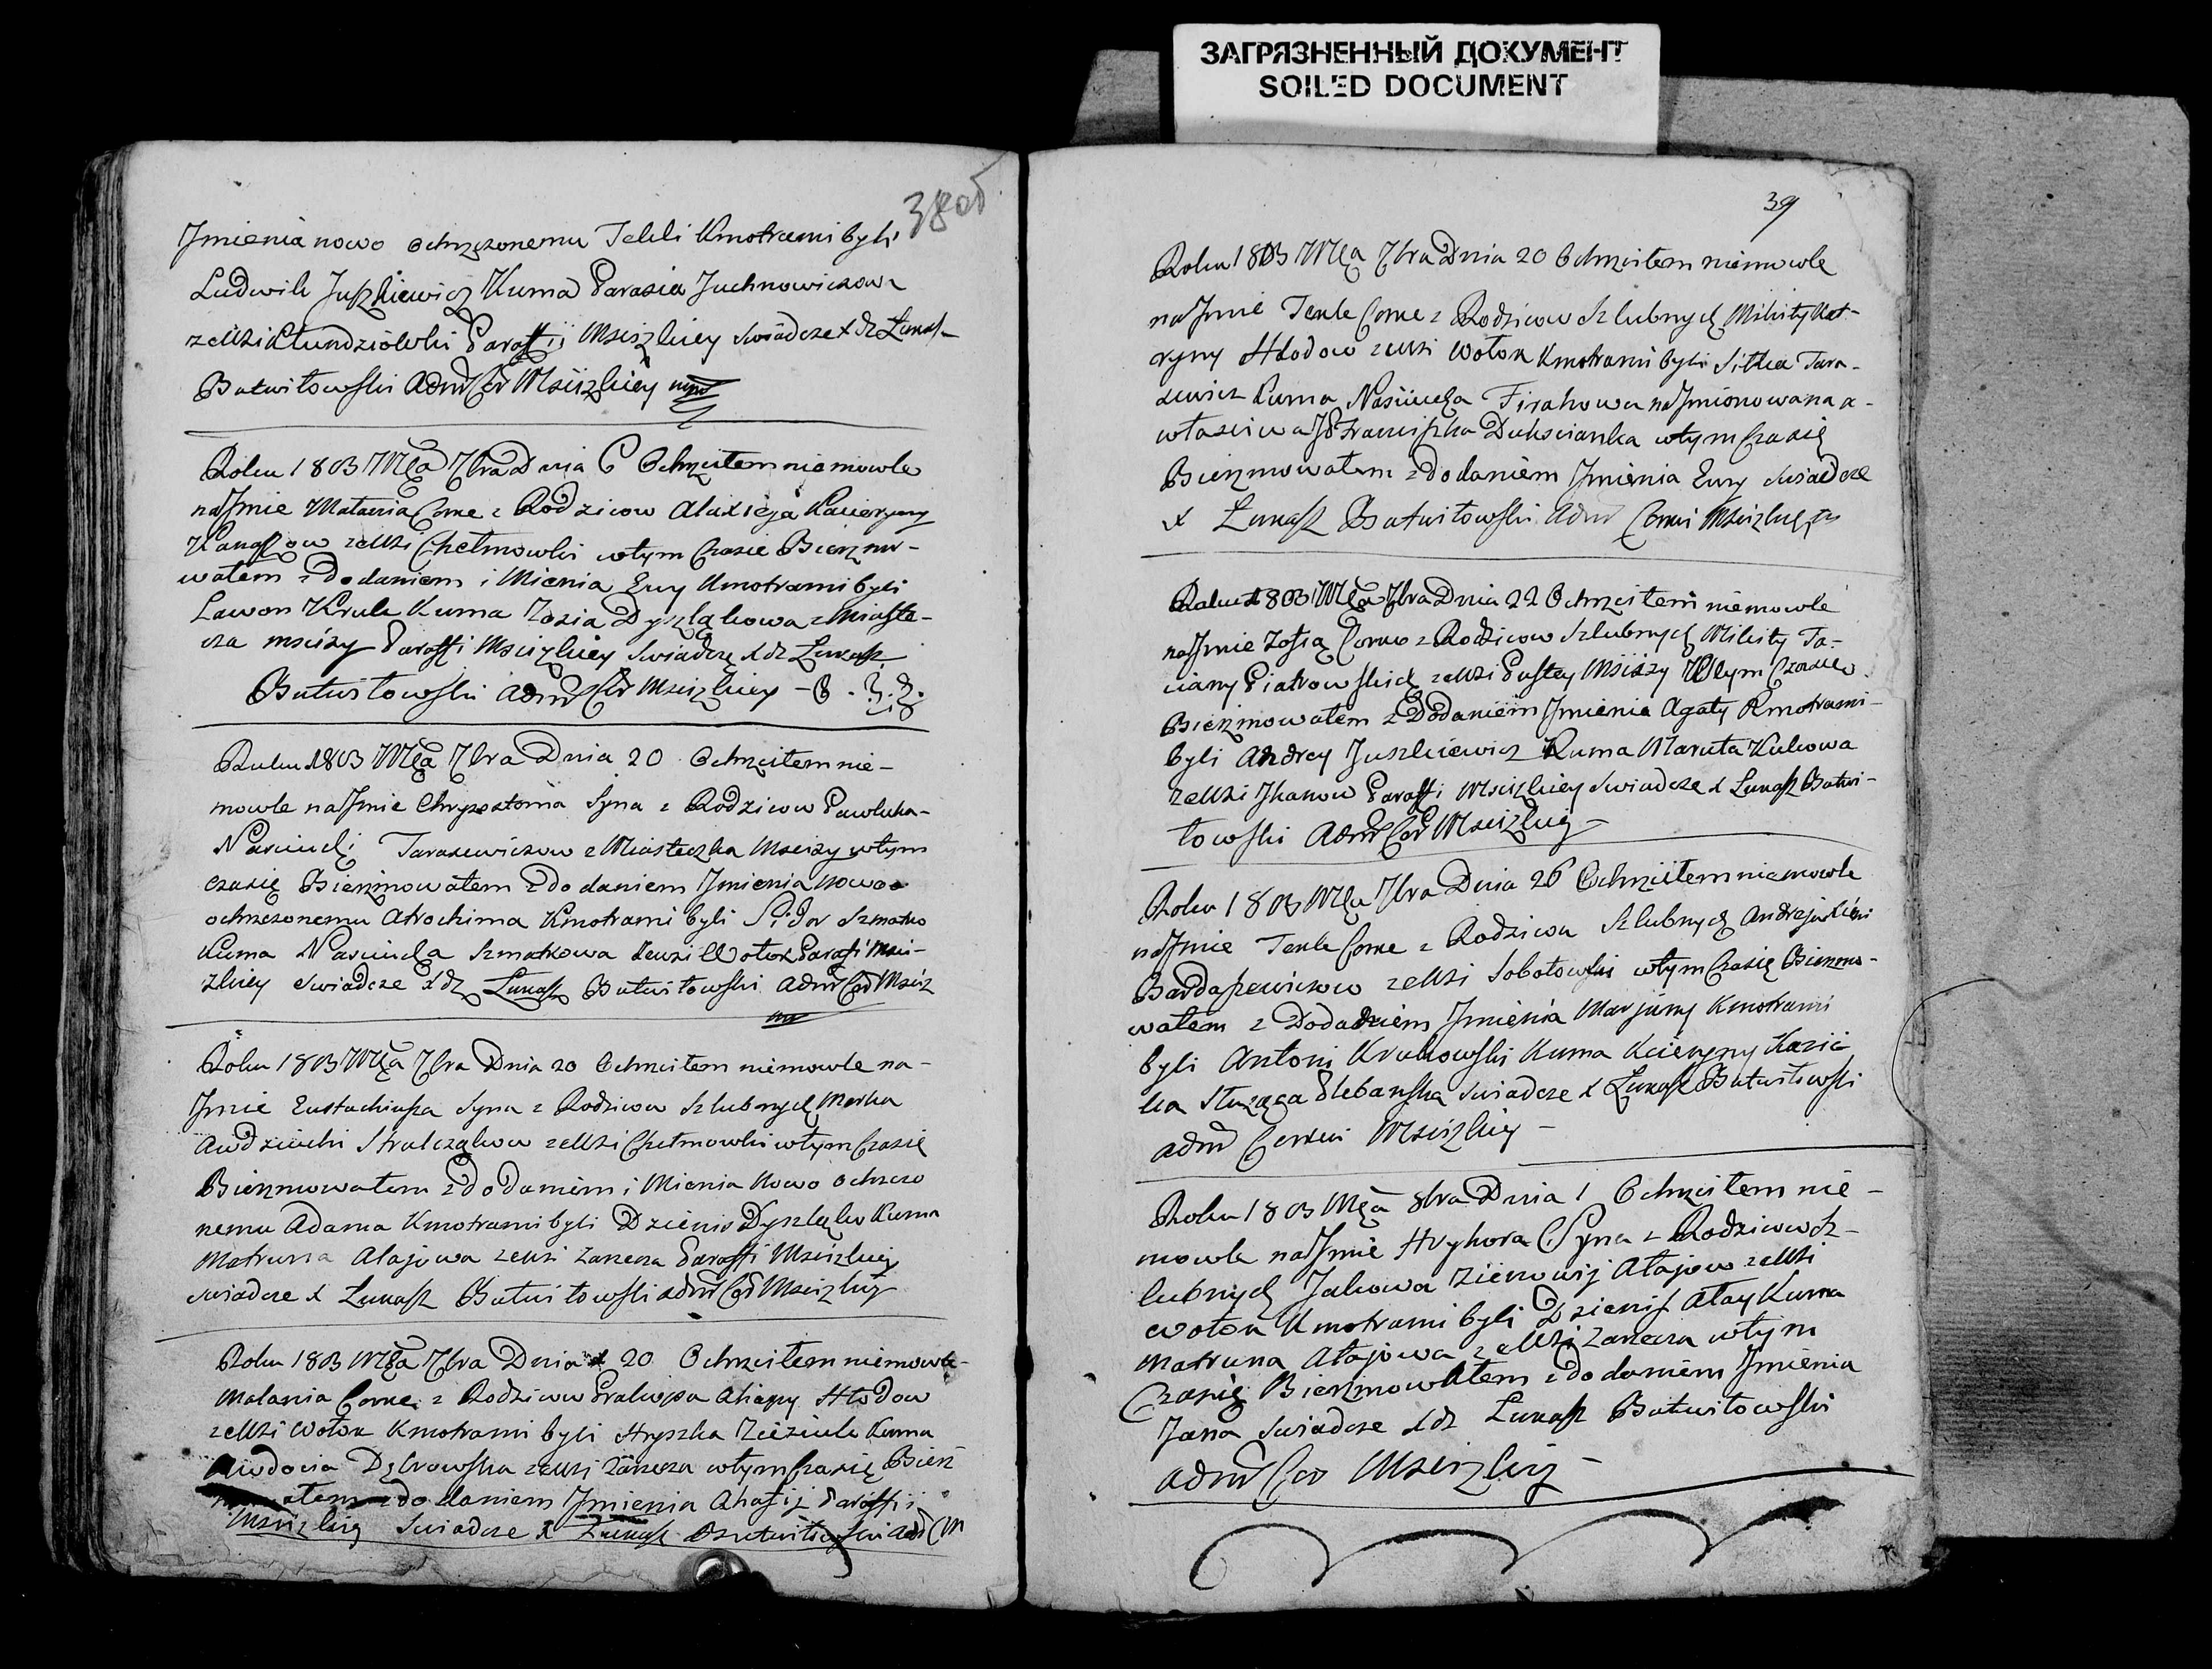 ЗАГРЯЗНЕННЫЙ ДОКУМЕНТ
SOILED DOCUMENT
38об
Jmienia nowo ochrzczonemu Tekli Kmotrami byli
Ludwik Juszkiewicz Kuma Parasia Juchnowiczowa
zewsi Parafii Mscizkiey Swiadcze X dz Łukasz
Butwiłowski Adm Cer Mscizkiey
Roku 1803 Mca 7bra Dnia 6 Ochrzciłem niemowle
na Jmie Matania Corne z Rodzicow Alexieja Kacieryny
zewsi Chełmowki wtym Czasie Bierzmo-
wałem z Dodaniem i Mienia Ewy Kmotrami byli
Lawon Kruk Kuma Zosia Dyszląkowa z Miaste-
czka mscizy Parafi Mscizkiey Swiadczę X dz Łukasz
Butwiłowski Adm Cer Mscizkiey
Roku 1803 Mca 7bra Dnia 20 Ochrzciłem nie-
mowle na Jmie Chryzostoma Syna z Rodzicow Pawluka
Nasciuchi Tarasewiczow z Miasteczka Mscizy wtym
czasię Bierzmowałem z dodaniem Jmienia nowo
ochrzczonemu Atrochima Kmotrami byli Sidor Szmatko
Kuma Nasciucha Szmatkowa zewsi Wołok Parafi Msci-
zkiey Swiadcze X dz Łukasz Butwiłowski Adm Cer Msciz
Roku 1803 Mca 7bra Dnia 20 Ochrzciłem niemowle na-
Jmie Eustachiusza Syna z Rodzicow Szlubnych Marka
Awdziuchi Stralcząkow zewsi Chełmowki wtym Czasię
Bierzmowałem z dodaniem i Mienia nowo ochrzczo
nemu Adama Kmotrami byli Dzienis Dyszlęko Kuma
Matruna Ałajowa zewsi Zarzecza Parafi Mscizkiey
swiadcze X Łukasz Butwiłowski adm Cer Mscizkiey
Roku 1803 Mca 7bra Dnia 20 Ochrzciłem niemowle-
Malania Corne z Rodzicow Prakopa Ahapy Hłodow
zewsi Wołok Kmotrami byli Hryszka Zieziula Kuma
Awdocia Dąbrowska zewsi Zarzecza wtym Czasię Bierz
z dodaniem Jmienia Ahafij Parafii
Mscizkiey Swiadcze X Łukasz Butwiłowski Ad
39
Roku 1803 Mca 7bra Dnia 20 Ochrzciłem niemowle
na Jmie Tekle Corne z Rodzicow Szlubnych Mikity Kat-
ryny Hłodow zewsi Wołok Kmotrami byli Siłka Tara-
sewicz Kuma Nasciucha Firahowa na Jmionowana a-
własciwa JP Franciszka Duksianka wtym Czasię
Bierzmowałem z dodaniem Jmienia Ewy swiadcze
X Łukasz Butwiłowski Adm Cerkwi Mscizkiey
Roku 1803 Mca 7bra Dnia 22 Ochrzciłem niemowle
na Jmie Zofią Corno z Rodzicow Szlubnych Mikity Ta-
ciany Piatrowskich zewsi Pustey Mscizy Wtym Czasie
Bierzmowałem z Dodaniem Jmienia Agaty Kmotrami-
byli Andrey Juszkiewicz Kuma Maruta Kukowa
zewsi Jkanow Parafi Mscizkiey Swiadcze X Łukasz Butwi-
łowski Adm Cer Mscizkiey-
Roku 1803 Mca 7bra Dnia 26 Ochrzciłem niemowle
na Jmie Tekle Corne z Rodzicow Szlubnych Andreja
zewsi Sobotowki wtym Czasię Bierzmo-
wałem z Dodaniem Jmienia Marjany Kmotrami
byli Antoni Krukowski Kuma Kcieryny
Służąca Plebanska Swiadcze X Łukasz Butwiłowski
adm Cerkwi Mscizkiey-
Roku 1803 Mca 8bra Dnia 1 Ochrzciłem nie-
mowle na Jmie Hryhora Syna z Rodzicow Sz-
lubnych Jakowa Zienowij Ałajow zewsi
Wołok Kmotrami byli Dzienis Ałay Kuma
Matruna Ałajowa zewsi Zarzecza wtym
Czasię Bierzmowałem z dodaniem Jmienia
Jana Swiadcze X dz Łukasz Butwiłowski
adm Cer Mscizkiey-